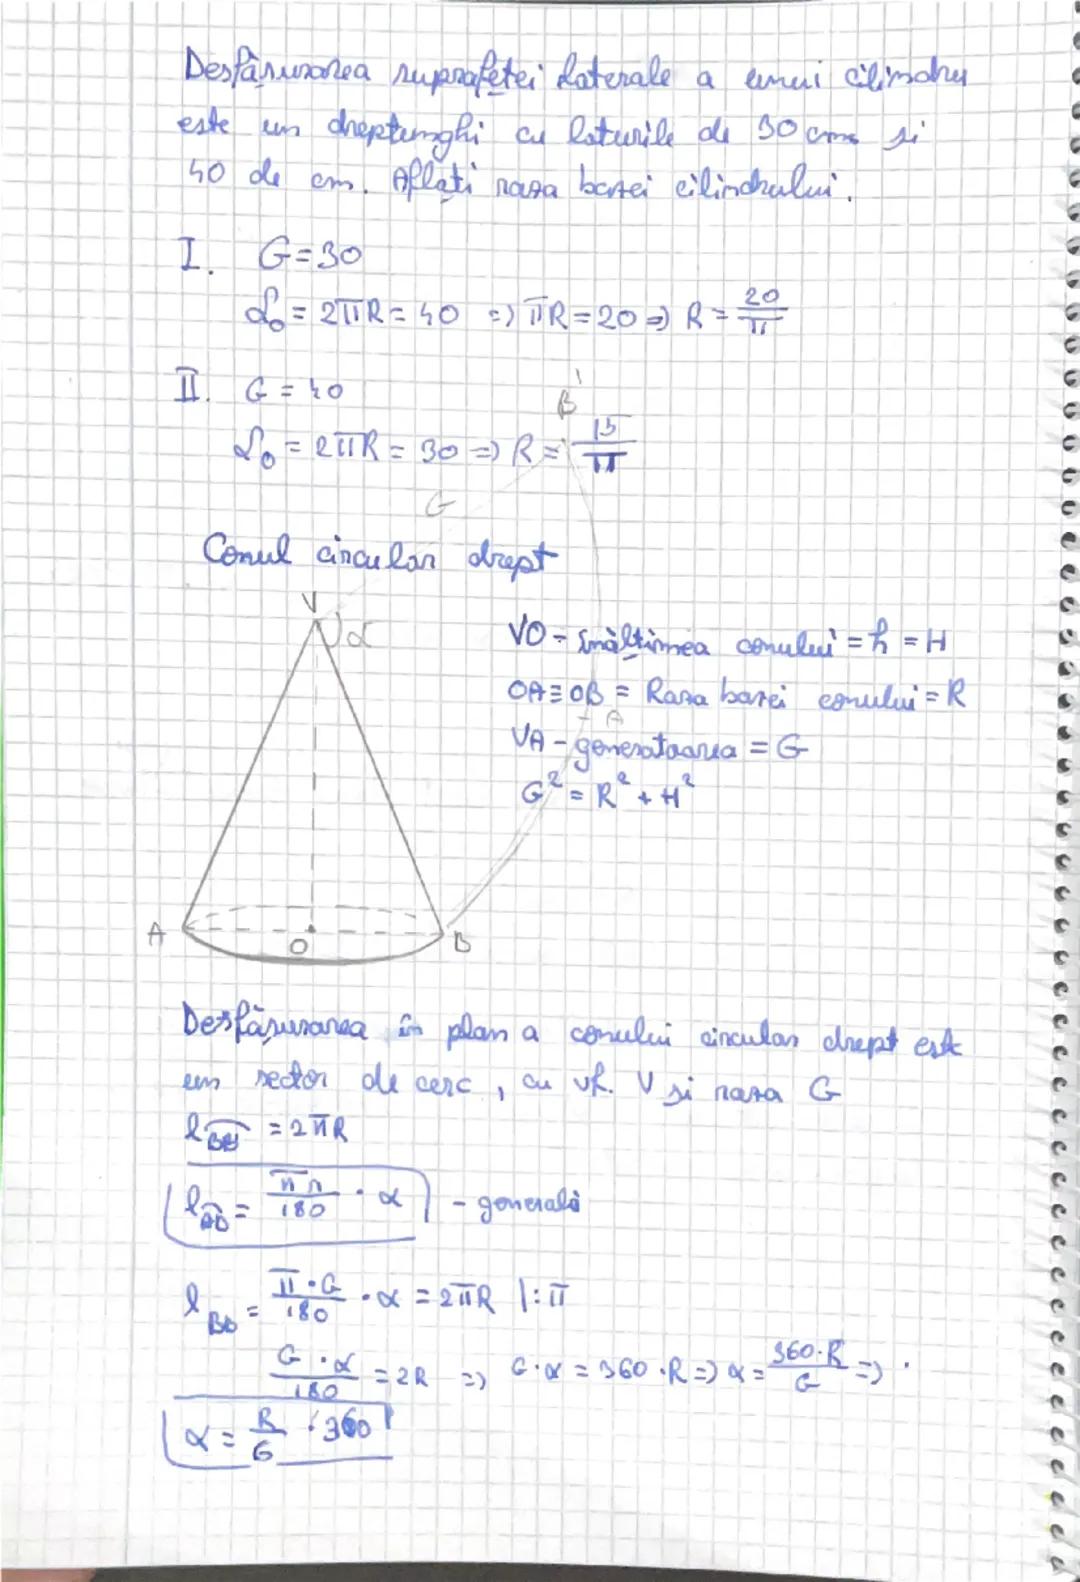 Desfășurarea suprafeței laterale a unui cilindru
este un dreptunghi cu laturile de 30 cm și
40 de cm. Aflați raza bazei cilindrului.
I. G=30
L₀ = 2πR = 40 => πR = 20 => R = 20/π
II. G = 40
B'
L₀ = 2πR = 30 => R = 15/π
G
Conul circular drept
V α
VO - înălțimea conului = h = H
OA≡OB = Raza bazei conului = R
A
VA - generatoarea = G
G² = R² + H²
A O B
Desfășurarea în plan a conului circular drept este
un sector de cerc, cu vf. V și raza G
l BB' = 2πR
l AB = πr/180 · α - generală
l BB' = π·G/180 · α = 2πR |:π
G·α/180 = 2R => G·α = 360·R => α = 360·R/G =>
α = R/G · 360